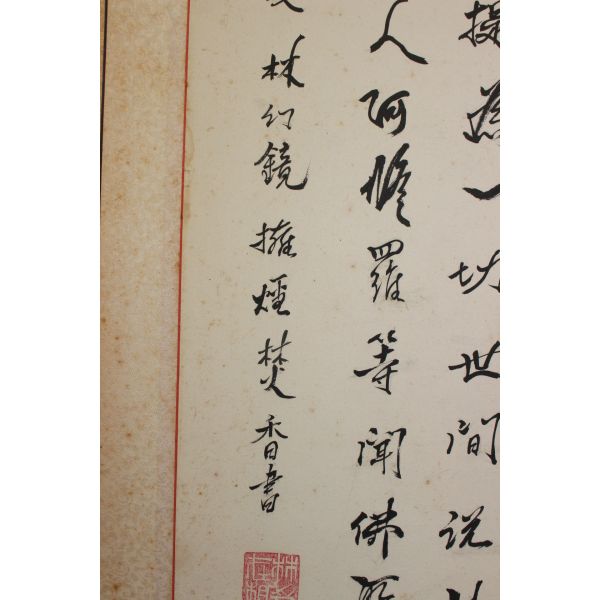 提为一切世间说
人阿脩羅等聞佛
林幻鏡擁煙焚香書